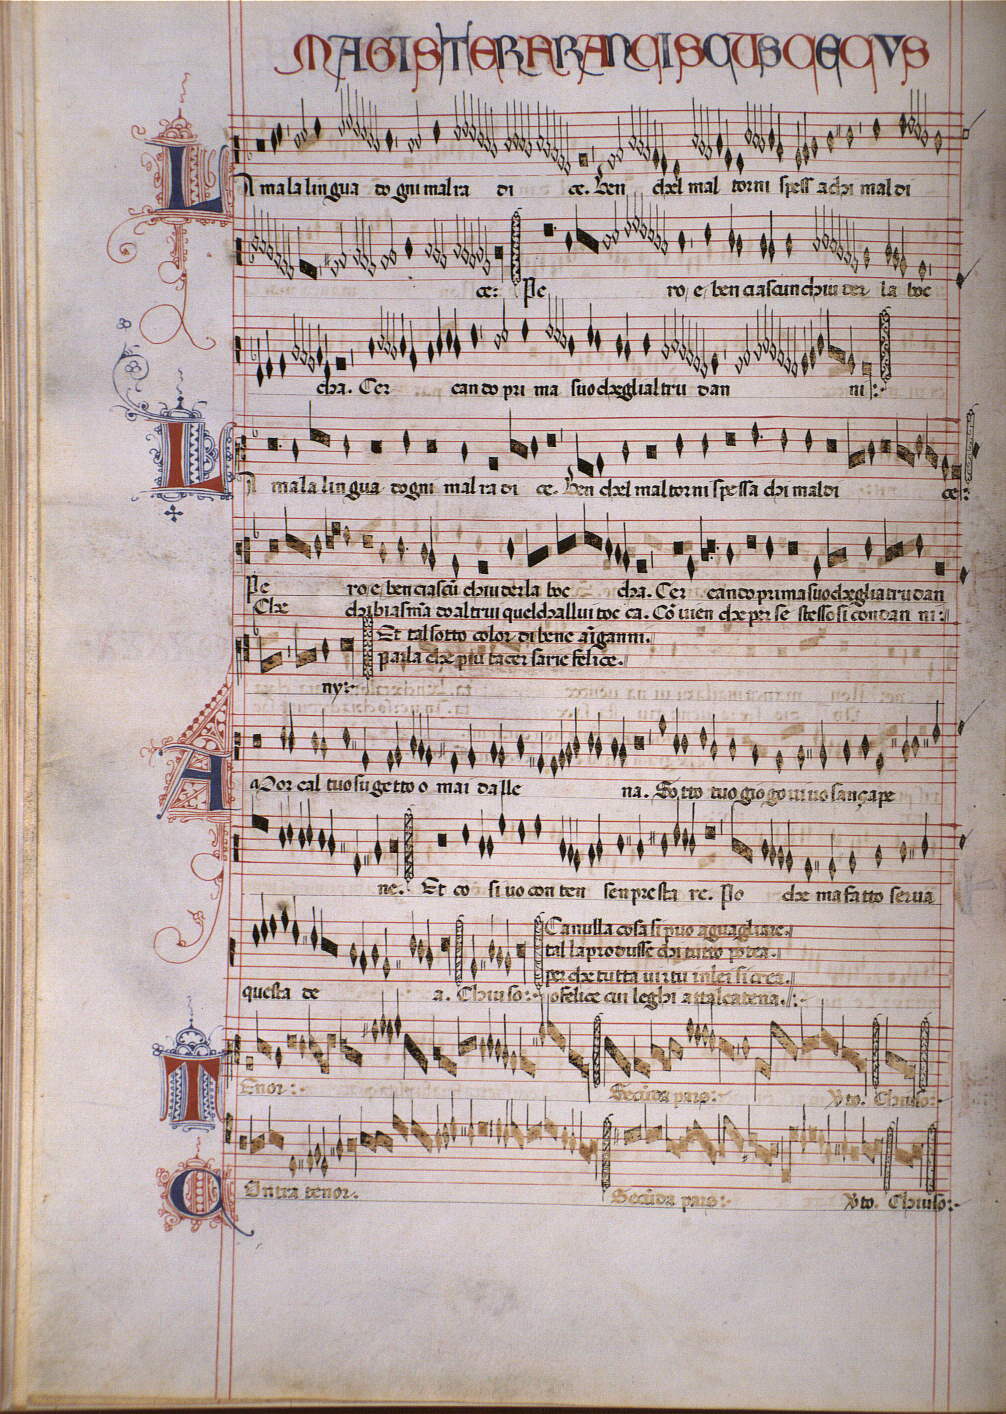 MAGISTER FRANCISCUS CECVS
LA mala lingua do gni mal ra di ce. Ben chel mal torni spess a chi mal di
ce: Pe ro, e, ben ciascun chiu der la boc
cha. Cer can do pri ma suo che gli altru dan ni:
LA mala lingua do gni mal ra di ce. Ben chel mal torni spessa chi mal di ce:
Pe ro, e, ben ciascũ chiu der la boc cha. Cer can do prima suo che gli altru dan
Che chi biasma do altrui quel challui toc ca. Cõ uien che per se stesso si condan ni:
Et tal sotto color di bene
parla che piu tacer sarie felice.
ny:
AMor cal tuo sugetto o mai da lle na. Sotto tuo giogo uiuo sança pe
ne. Et co si uo con ten sen presta re. Po che ma fatto serua
Ca nulla cosa si puo aguagliare.
tal la produsse chi tutto
per che tutta uirtu in lei si crea.
questa de a. Chiuso: o felice cui leghi a tal catena.
TEnor: Secũda pars: Chiuso:
COntra tenor. Secũda pars: Chiuso: